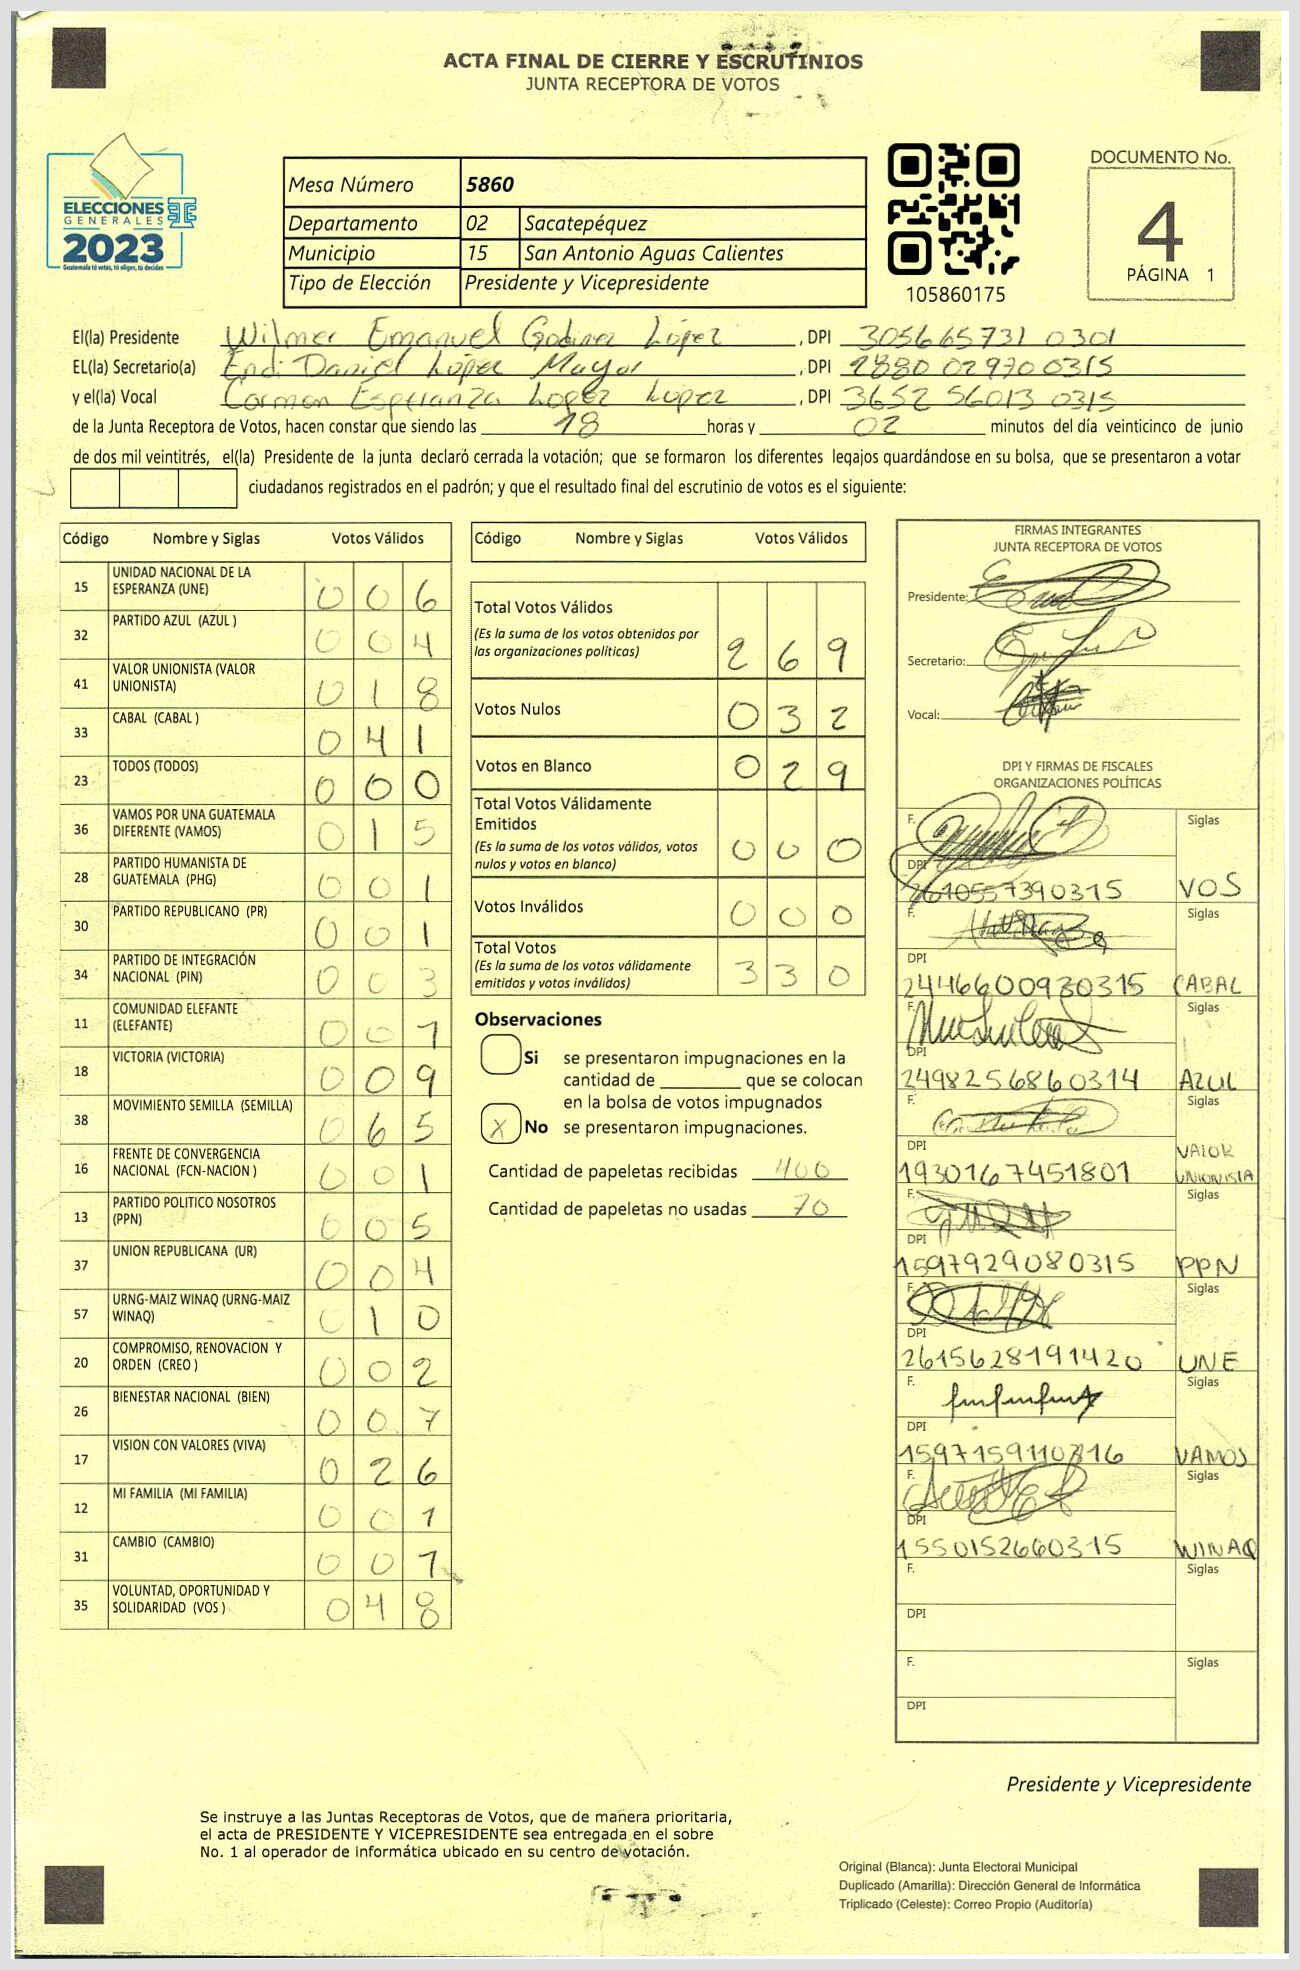 ACTA FINAL DE CIERRE Y ESCRUTINIOS
JUNTA RECEPTORA DE VOTOS
ELECCIONES
GENERALES
2023
Guatemala tú votas, tú eliges, tú decides
Mesa Número 5860
Departamento 02 Sacatepéquez
Municipio 15 San Antonio Aguas Calientes
Tipo de Elección Presidente y Vicepresidente
105860175
DOCUMENTO No.
4
PÁGINA 1
El(la) Presidente Wilmer Emanuel Godinez López , DPI 305665731 0301
EL(la) Secretario(a) Endi Daniel López Mayor , DPI 2880 02970 0315
y el(la) Vocal Carmen Esperanza Lopez Lopez , DPI 3652 56013 0315
de la Junta Receptora de Votos, hacen constar que siendo las 18 horas y 02 minutos del día veinticinco de junio
de dos mil veintitrés, el(la) Presidente de la junta declaró cerrada la votación; que se formaron los diferentes legajos guardándose en su bolsa, que se presentaron a votar
ciudadanos registrados en el padrón; y que el resultado final del escrutinio de votos es el siguiente:
Código Nombre y Siglas Votos Válidos
15 UNIDAD NACIONAL DE LA ESPERANZA (UNE) 006
32 PARTIDO AZUL (AZUL ) 004
41 VALOR UNIONISTA (VALOR UNIONISTA) 018
33 CABAL (CABAL ) 041
23 TODOS (TODOS) 000
36 VAMOS POR UNA GUATEMALA DIFERENTE (VAMOS) 015
28 PARTIDO HUMANISTA DE GUATEMALA (PHG) 001
30 PARTIDO REPUBLICANO (PR) 001
34 PARTIDO DE INTEGRACIÓN NACIONAL (PIN) 003
11 COMUNIDAD ELEFANTE (ELEFANTE) 001
18 VICTORIA (VICTORIA) 009
38 MOVIMIENTO SEMILLA (SEMILLA) 065
16 FRENTE DE CONVERGENCIA NACIONAL (FCN-NACION ) 001
13 PARTIDO POLITICO NOSOTROS (PPN) 005
37 UNION REPUBLICANA (UR) 004
57 URNG-MAIZ WINAQ (URNG-MAIZ WINAQ) 010
20 COMPROMISO, RENOVACION Y ORDEN (CREO ) 002
26 BIENESTAR NACIONAL (BIEN) 007
17 VISION CON VALORES (VIVA) 026
12 MI FAMILIA (MI FAMILIA) 001
31 CAMBIO (CAMBIO) 001
35 VOLUNTAD, OPORTUNIDAD Y SOLIDARIDAD (VOS ) 048
Código Nombre y Siglas Votos Válidos
Total Votos Válidos 269
(Es la suma de los votos obtenidos por
las organizaciones políticas)
Votos Nulos 032
Votos en Blanco 029
Total Votos Válidamente
Emitidos 000
(Es la suma de los votos válidos, votos
nulos y votos en blanco)
Votos Inválidos 000
Total Votos 330
(Es la suma de los votos válidamente
emitidos y votos inválidos)
Observaciones
Si se presentaron impugnaciones en la
cantidad de ________ que se colocan
en la bolsa de votos impugnados
X No se presentaron impugnaciones.
Cantidad de papeletas recibidas 400
Cantidad de papeletas no usadas 70
FIRMAS INTEGRANTES
JUNTA RECEPTORA DE VOTOS
Presidente:
Secretario:
Vocal:
DPI Y FIRMAS DE FISCALES
ORGANIZACIONES POLÍTICAS
F. Siglas
DPI 3610557390315 VOS
F. Siglas
DPI 2446600930315 CABAL
F. Siglas
DPI 2498256860314 AZUL
F. Siglas
DPI 1930167451801 VALOR UNIONISTA
F. Siglas
DPI 1597929080315 PPN
F. Siglas
DPI 2615628191420 UNE
F. Siglas
DPI VAMOS
F. Siglas
DPI 1550152660315 WINAQ
F. Siglas
DPI
F. Siglas
DPI
Presidente y Vicepresidente
Se instruye a las Juntas Receptoras de Votos, que de manera prioritaria,
el acta de PRESIDENTE Y VICEPRESIDENTE sea entregada en el sobre
No. 1 al operador de informática ubicado en su centro de votación.
Original (Blanca): Junta Electoral Municipal
Duplicado (Amarilla): Dirección General de Informática
Triplicado (Celeste): Correo Propio (Auditoría)